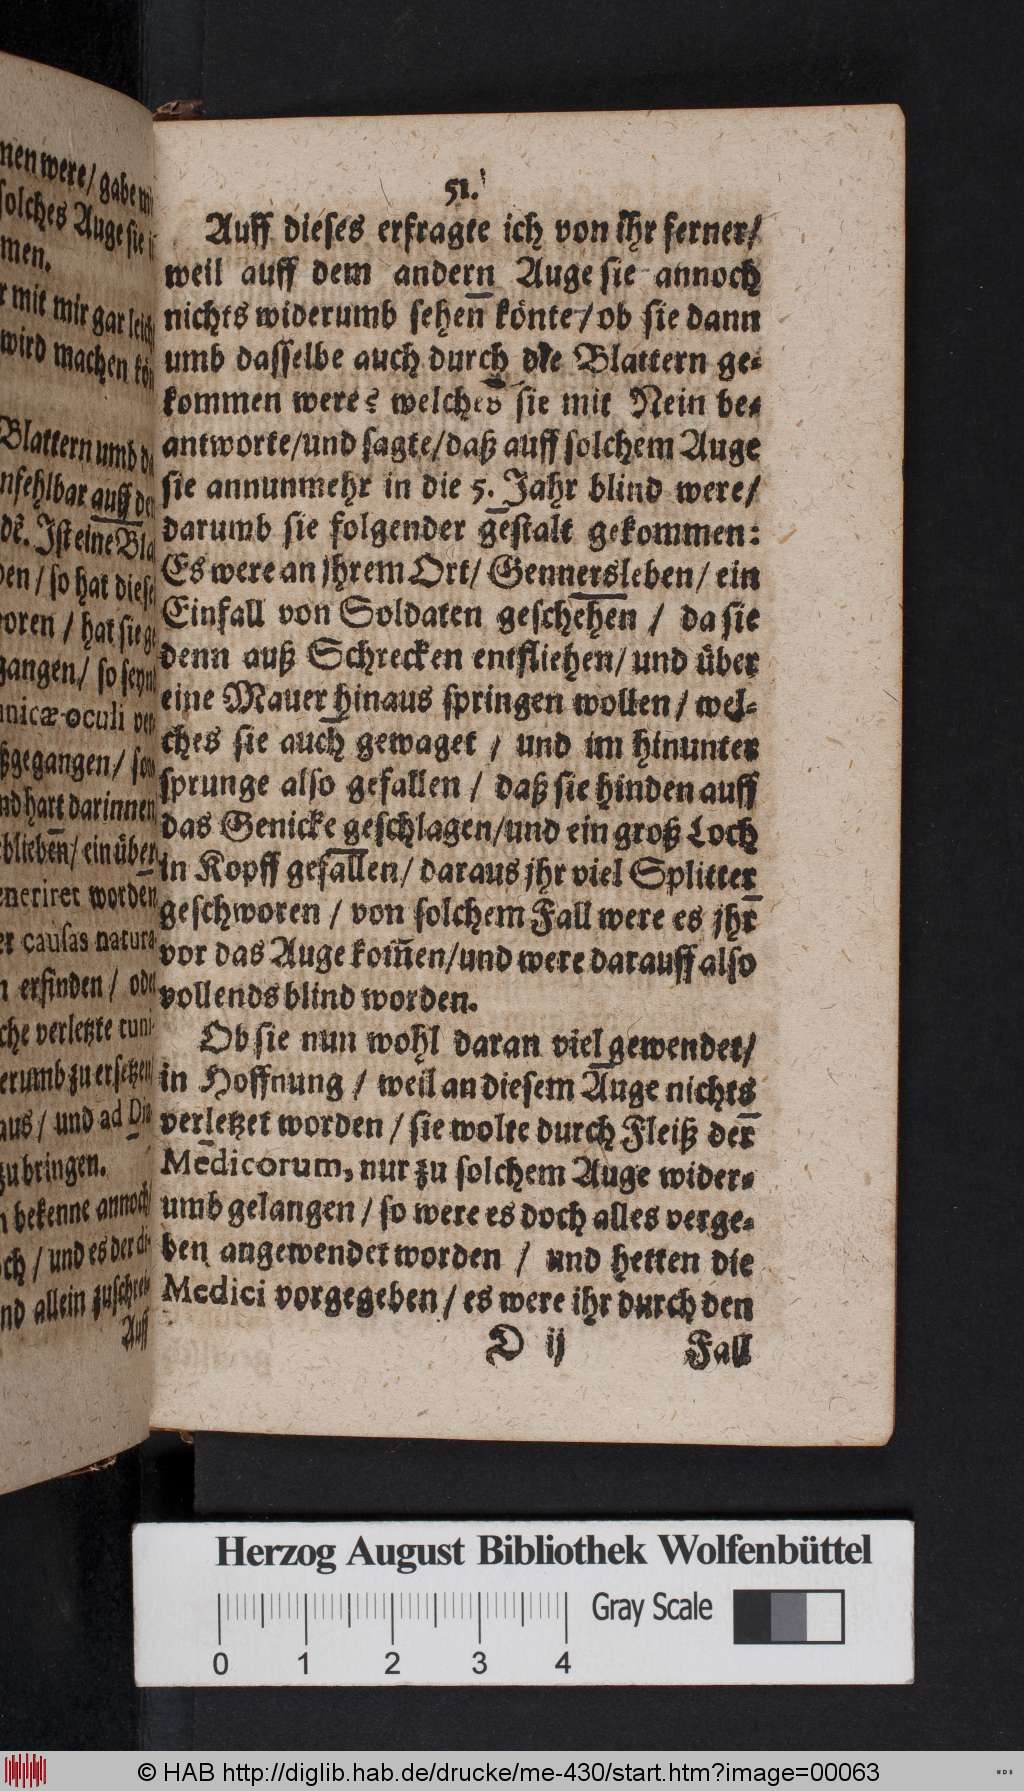 nen were / gabe
solches Auge sie
men.
mit mir gar leich
wird machen kön
Blattern umb
nfehlbar auff der
Ist eine Bla
den / so hat diese
oren / hat sie ge
gangen / so seyn
nicæ oculi ver
ßgegangen / so
nd hart darinnen
blieben / ein über
eneriret worden
er causas natura
n erfinden / oder
che verletzte tuni
erumb zu ersetzen
aus / und ad
zu bringen.
bekenne annoch
och / und es der
nd allein zuschrei
Auff
51.
Auff dieses erfragte ich von ihr ferner /
weil auff dem andern Auge sie annoch
nichts widerumb sehen könte / ob sie dann
umb dasselbe auch durch die Blattern ge-
kommen were? welches sie mit Nein be-
antworte / und sagte / daß auff solchem Auge
sie annunmehr in die 5. Jahr blind were /
darumb sie folgender gestalt gekommen:
Es were an jhrem Ort / Gennersleben / ein
Einfall von Soldaten geschehen / da sie
denn auß Schrecken entfliehen / und über
eine Mauer hinaus springen wollen / wel-
ches sie auch gewaget / und im hinunter
sprunge also gefallen / daß sie hinden auff
das Genicke geschlagen / und ein groß Loch
in Kopff gefallen / daraus jhr viel Splitter
geschworen / von solchem Fall were es jhr
vor das Auge kom̃en / und were darauff also
vollends blind worden.
Ob sie nun wohl daran viel gewendet /
in Hoffnung / weil an diesem Auge nichts
verletzet worden / sie wolte durch Fleiß der
Medicorum, nur zu solchem Auge wider-
umb gelangen / so were es doch alles verge-
ben angewendet worden / und hetten die
Medici vorgegeben / es were ihr durch den
D ij Fall
Herzog August Bibliothek Wolfenbüttel
Gray Scale
0 1 2 3 4
© HAB http://diglib.hab.de/drucke/me-430/start.htm?image=00063